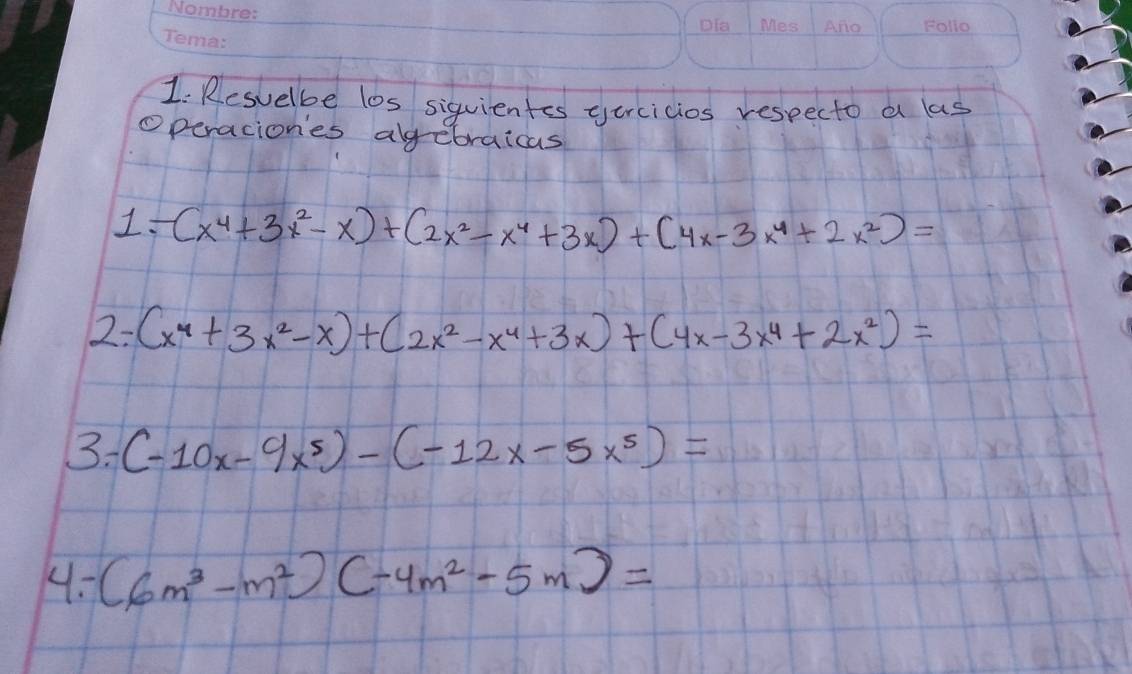 Nombre:
Tema:
Día Mes Año
Folio
1.- Resuelbe los siguientes ejercicios respecto a las
Operaciones algebraicas
1.- (x⁴+3x²-x)+(2x²-x⁴+3x)+(4x-3x⁴+2x²)=
2.- (x⁴+3x²-x)+(2x²-x⁴+3x)+(4x-3x⁴+2x²)=
3.- (-10x-9x⁵)-(-12x-5x⁵)=
4.- (6m³-m²)(-4m²-5m)=